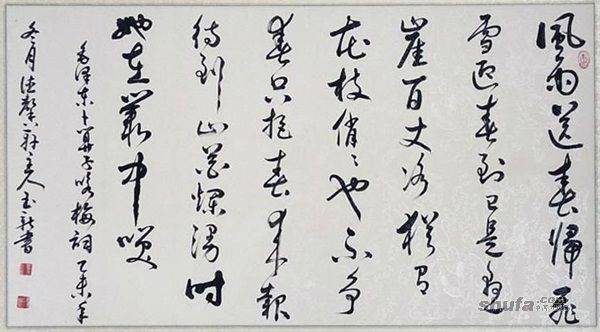 風雨送春歸飛
雪迎春到已是懸
崖百丈冰猶有
花枝俏〻也不爭
春只把春來報
待到山花爛漫時
她在叢中笑
毛澤東卜算子咏梅詞乙未年
冬月德馨軒主人玉新書
shufa.com